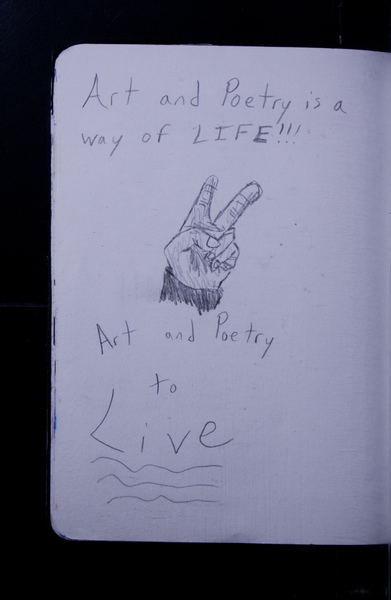 Art and Poetry is a
way of LIFE!!!
Art and Poetry
to
Live